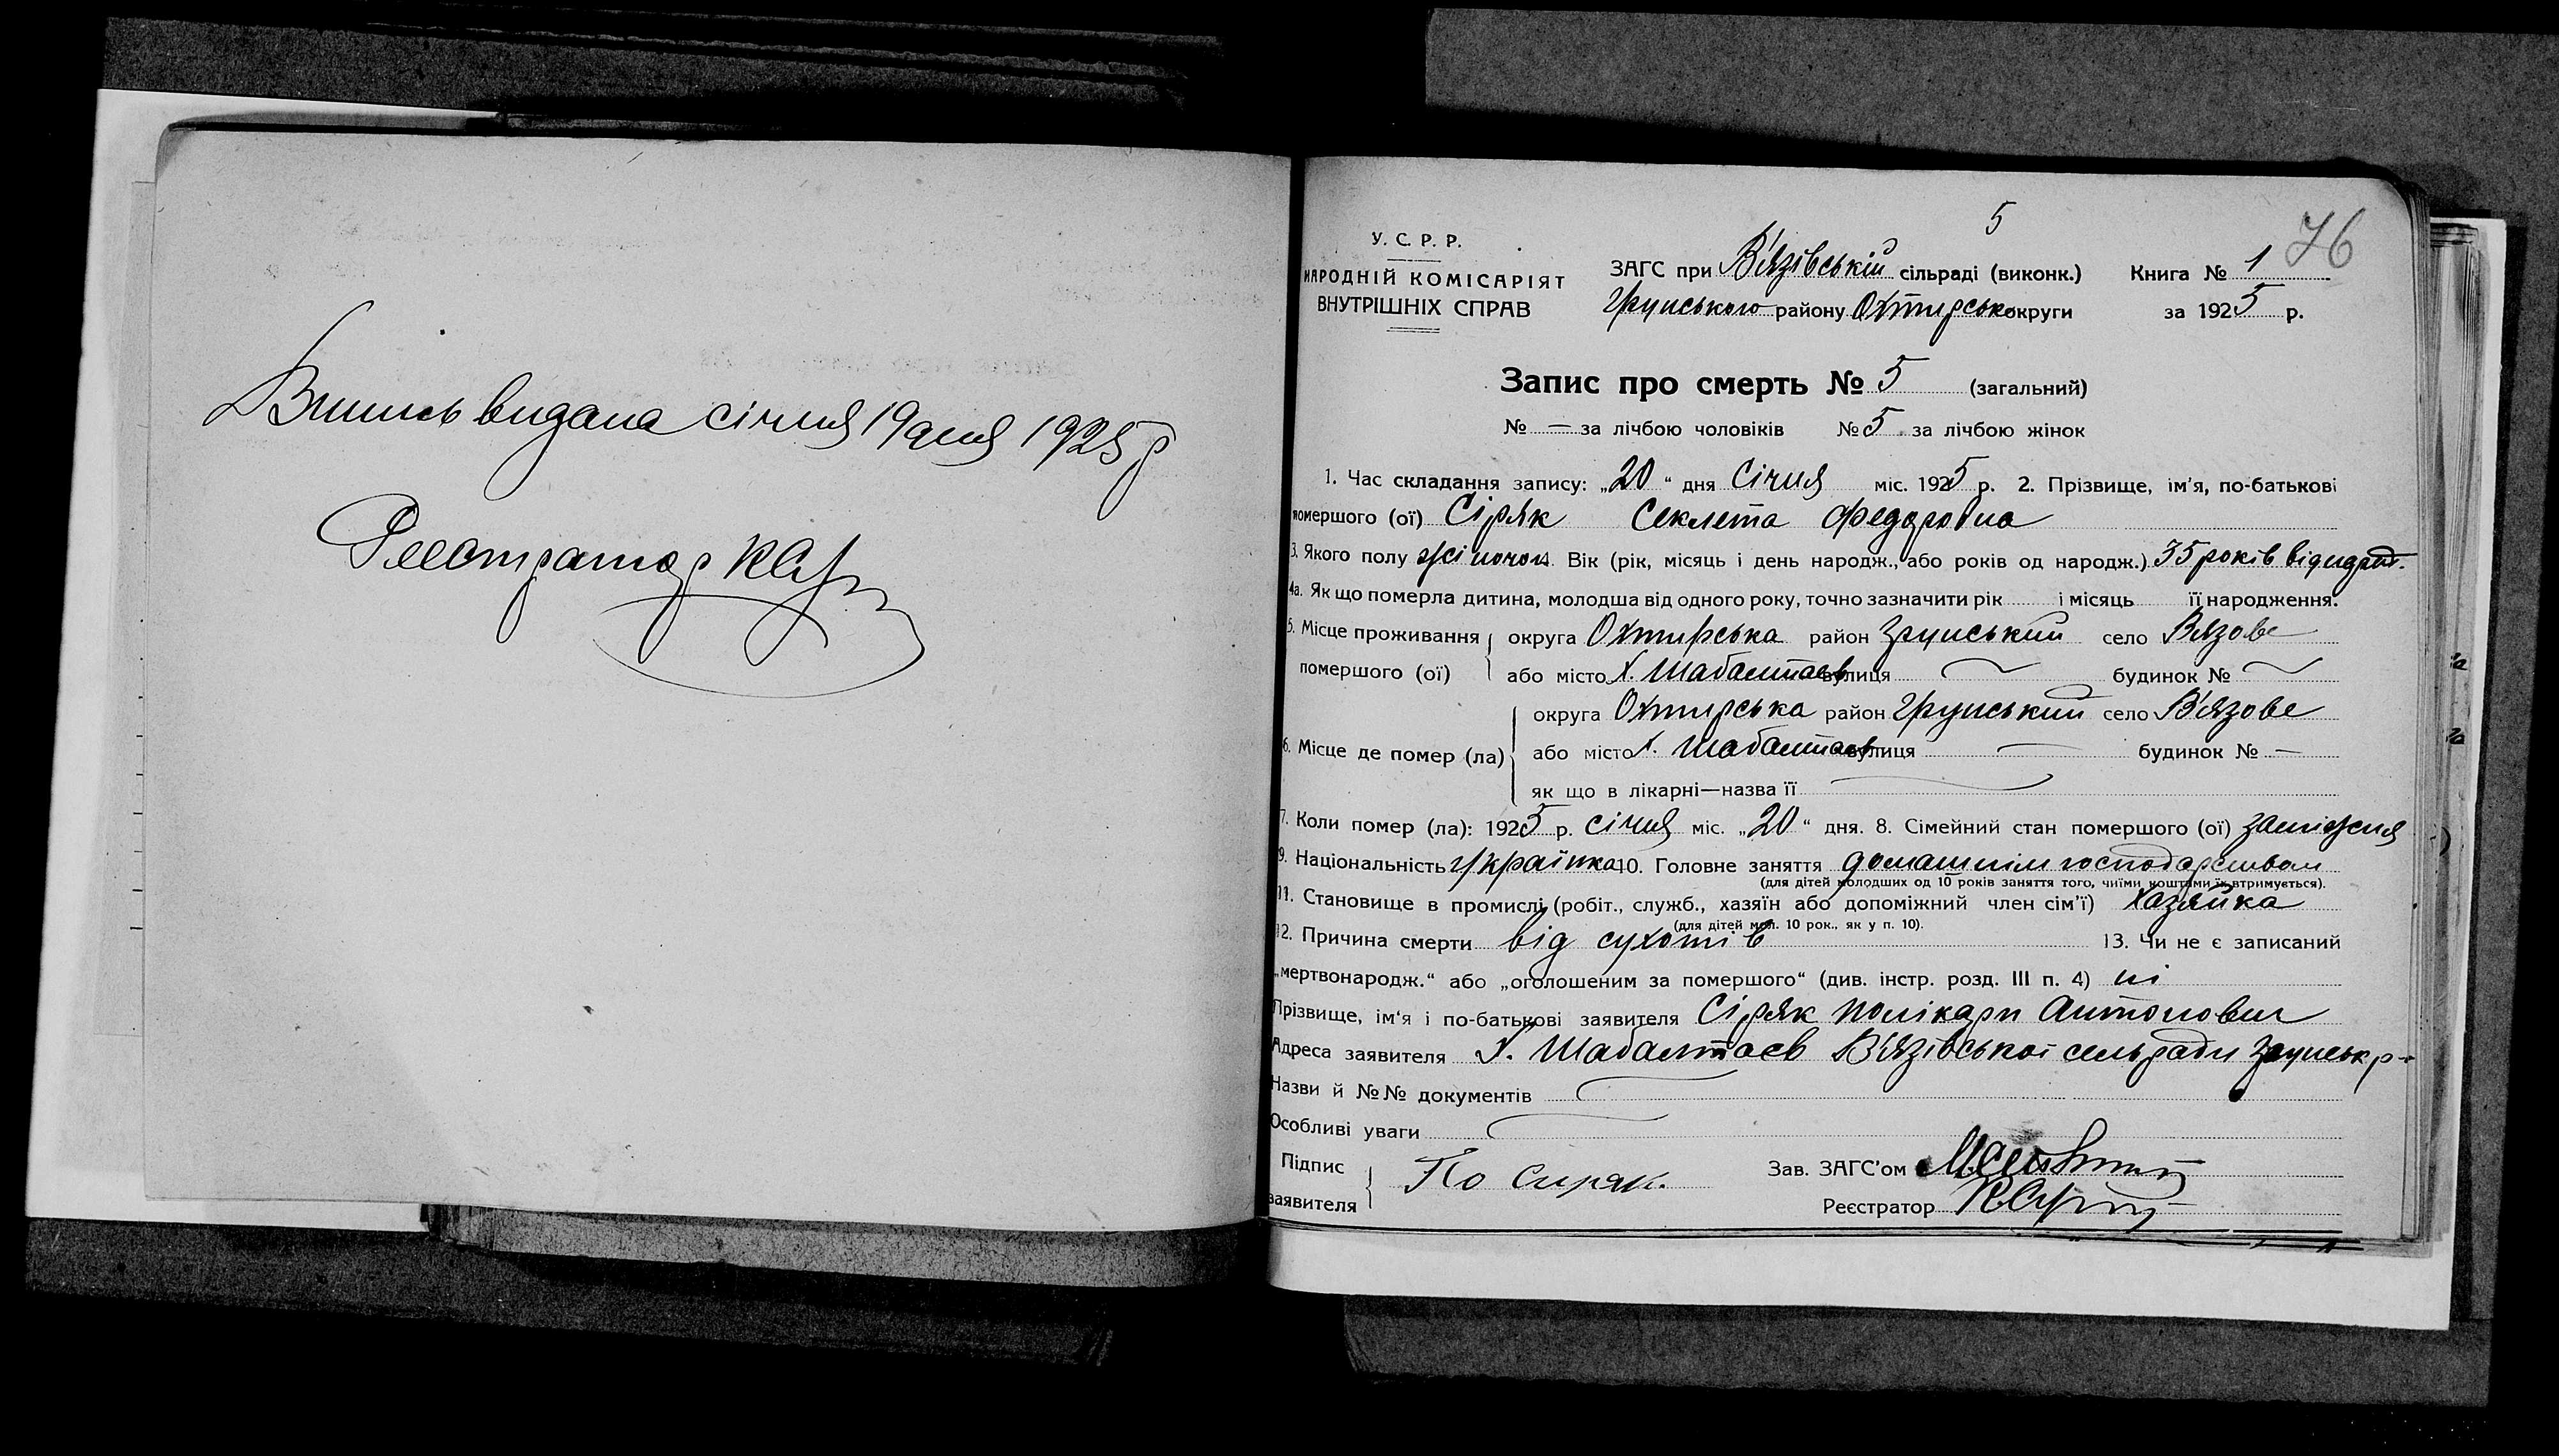 Випись видана січня 19 дня 1925 р
Реєстратор
5
76
У. С. Р. Р.
НАРОДНІЙ КОМІСАРІЯТ
ВНУТРІШНІХ СПРАВ
ЗАГС при В'язівській сільраді (виконк.)
Грунського району Охтирсько округи
Книга № 1
за 1925 р.
Запис про смерть № 5 (загальний)
№ — за лічбою чоловіків № 5 за лічбою жінок
1. Час складання запису: „20“ дня Січня міс. 1925 р. 2. Прізвище, ім'я, по-батькові
помершого (ої) Сіряк Секлета Федоровна
3. Якого полу жіночои Вік (рік, місяць і день народж., або років од народж.) 35 років від народ.
4а. Як що померла дитина, молодша від одного року, точно зазначити рік і місяць її народження.
5. Місце проживання округа Охтирська район Грунський село Вязове
помершого (ої) або місто Х. Шабалтаєв вулиця — будинок № —
округа Охтирська район Грунський село В'язове
6. Місце де помер (ла) або місто х. Шабалтаєв вулиця — будинок № —
як що в лікарні—назва її —
7. Коли помер (ла): 1925 р. січня міс. „20“ дня. 8. Сімейний стан помершого (ої) заміжня
9. Національність Українка 10. Головне заняття домашнім господарством
(для дітей молодших од 10 років заняття того, чиїми коштами їх втримується).
11. Становище в промислі (робіт., служб., хазяїн або допоміжний член сім'ї) хазяйка
(для дітей мол. 10 рок., як у п. 10).
12. Причина смерти від сухотів 13. Чи не є записаний
„мертвонародж.“ або „оголошеним за помершого“ (див. інстр. розд. III п. 4) ні
Прізвище, ім'я і по-батькові заявителя Сіряк Полікарп Антонович
Адреса заявителя Х. Шабалтаєв В'язівської сельради Грунськ р-
Назви й №№ документів —
Особливі уваги —
Підпис
заявителя По Сиряк.
Зав. ЗАГС'ом
Реєстратор